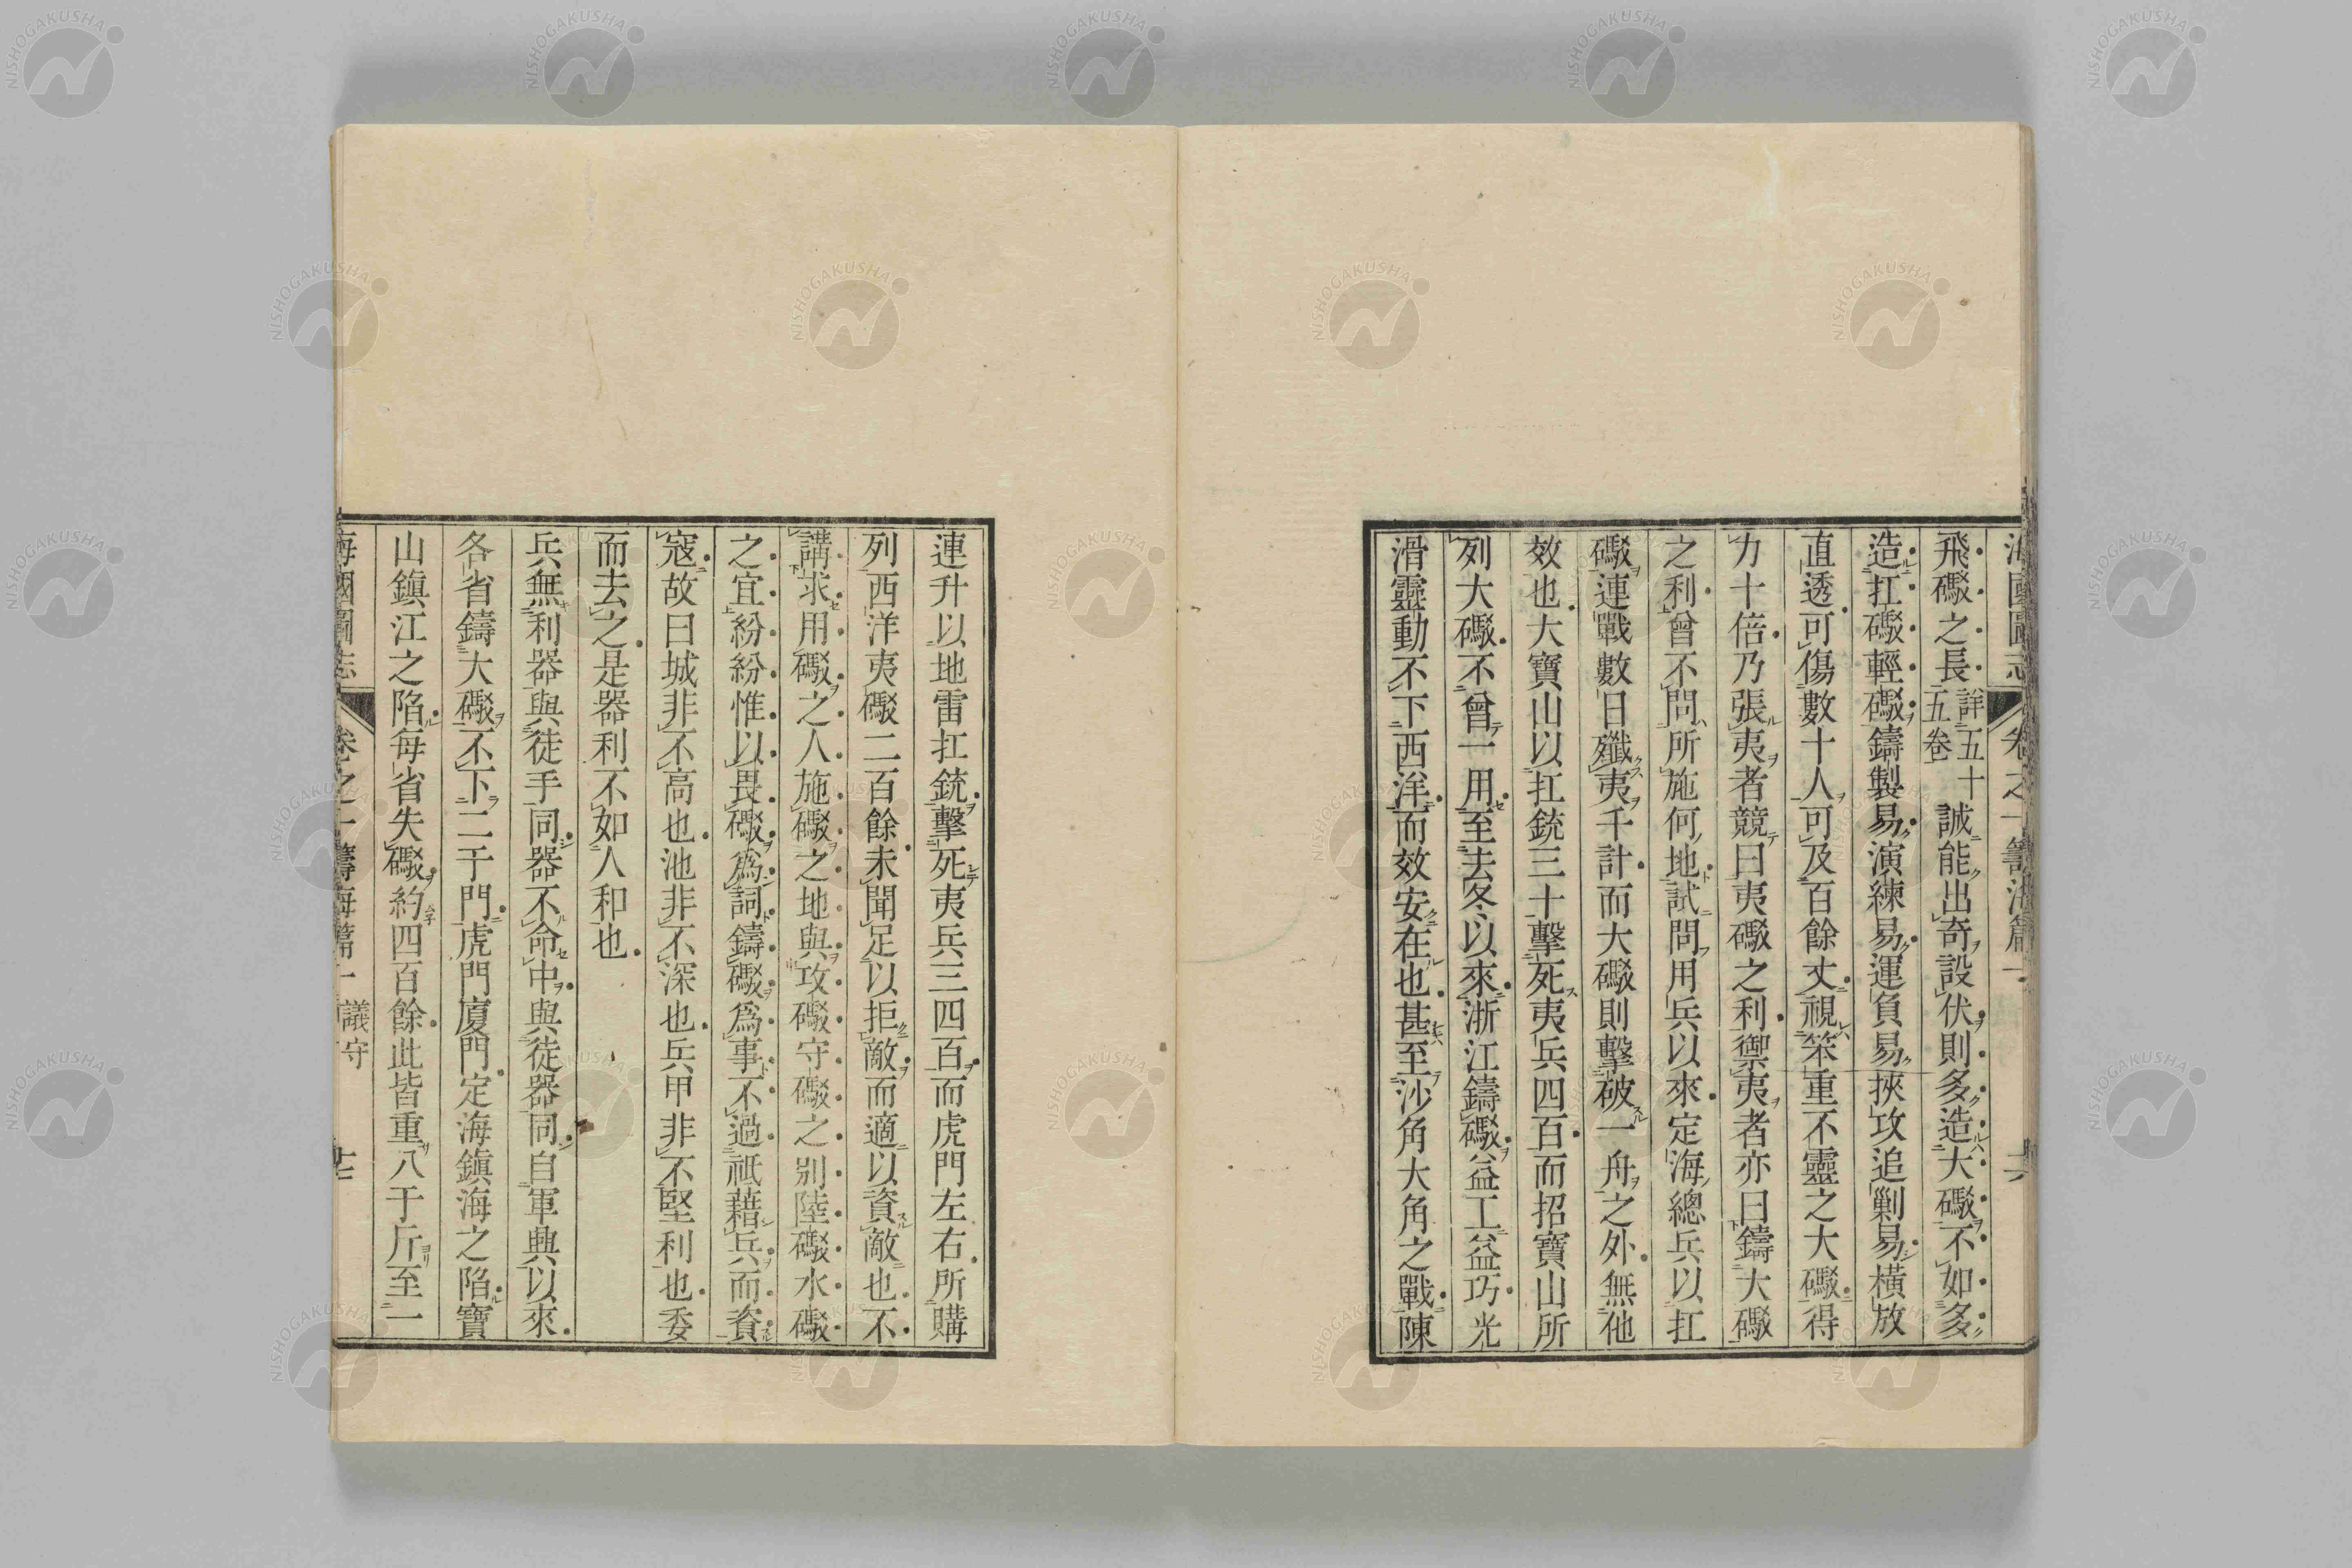 海國圖志 卷之一 籌海篇一 十六
飛礮之長詳五十五卷誠能出奇設伏則多造大礮不如多
造扛礮輕礮鑄製易演練易運負易挾攻追剿易橫放
直透可傷數十人可及百餘丈視笨重不靈之大礮得
力十倍乃張夷者競曰夷礮之利禦夷者亦曰鑄大礮
之利曾不問所施何地試問用兵以來定海總兵以扛
礮連戰數日殲夷千計而大礮則擊破一舟之外無他
效也大寶山以扛銃三十擊死夷兵四百而招寶山所
列大礮不曾一用至去冬以來浙江鑄礮益工益巧光
滑靈動不下西洋而效安在也甚至沙角大角之戰陳
連升以地雷扛銃擊死夷兵三四百而虎門左右所購
列西洋夷礮二百餘未聞足以拒敵而適以資敵也不
講求用礮之人施礮之地與攻礮守礮之別陸礮水礮
之宜紛紛惟以畏礮爲詞鑄礮爲事不過祗藉兵而資
寇故曰城非不高也池非不深也兵甲非不堅利也委
而去之是器利不如人和也
兵無利器與徒手同器不命中與徒器同自軍興以來
各省鑄大礮不下二千門虎門廈門定海鎮海之陷寶
山鎮江之陷每省失礮約四百餘此皆重八千斤至一
海國圖志 卷之一 籌海篇一 議守 十七
NISHOGAKUSHA